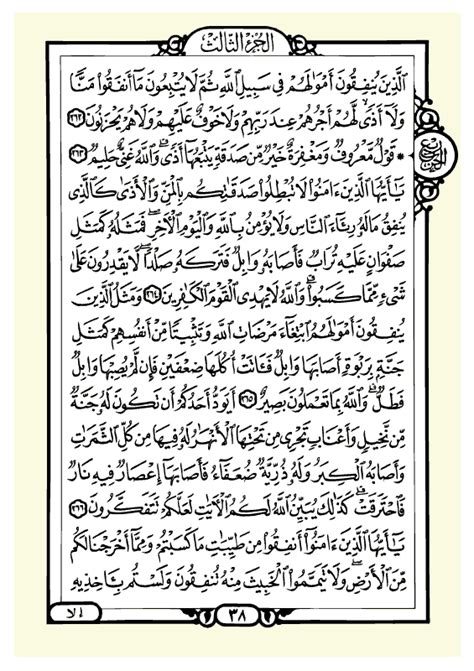 الجزء الثالث
الَّذِينَ يُنفِقُونَ أَمْوَالَهُمْ فِي سَبِيلِ اللَّهِ ثُمَّ لَا يُتْبِعُونَ مَا أَنفَقُوا مَنًّا
وَلَا أَذًى لَّهُمْ أَجْرُهُمْ عِندَ رَبِّهِمْ وَلَا خَوْفٌ عَلَيْهِمْ وَلَا هُمْ يَحْزَنُونَ ٢٦٢
* قَوْلٌ مَّعْرُوفٌ وَمَغْفِرَةٌ خَيْرٌ مِّن صَدَقَةٍ يَتْبَعُهَا أَذًى وَاللَّهُ غَنِيٌّ حَلِيمٌ ٢٦٣
يَا أَيُّهَا الَّذِينَ آمَنُوا لَا تُبْطِلُوا صَدَقَاتِكُم بِالْمَنِّ وَالْأَذَى كَالَّذِي
يُنفِقُ مَالَهُ رِئَاءَ النَّاسِ وَلَا يُؤْمِنُ بِاللَّهِ وَالْيَوْمِ الْآخِرِ فَمَثَلُهُ كَمَثَلِ
صَفْوَانٍ عَلَيْهِ تُرَابٌ فَأَصَابَهُ وَابِلٌ فَتَرَكَهُ صَلْدًا لَّا يَقْدِرُونَ عَلَى
شَيْءٍ مِّمَّا كَسَبُوا وَاللَّهُ لَا يَهْدِي الْقَوْمَ الْكَافِرِينَ ٢٦٤ وَمَثَلُ الَّذِينَ
يُنفِقُونَ أَمْوَالَهُمُ ابْتِغَاءَ مَرْضَاتِ اللَّهِ وَتَثْبِيتًا مِّنْ أَنفُسِهِمْ كَمَثَلِ
جَنَّةٍ بِرَبْوَةٍ أَصَابَهَا وَابِلٌ فَآتَتْ أُكُلَهَا ضِعْفَيْنِ فَإِن لَّمْ يُصِبْهَا وَابِلٌ
فَطَلٌّ وَاللَّهُ بِمَا تَعْمَلُونَ بَصِيرٌ ٢٦٥ أَيَوَدُّ أَحَدُكُمْ أَن تَكُونَ لَهُ جَنَّةٌ
مِّن نَّخِيلٍ وَأَعْنَابٍ تَجْرِي مِن تَحْتِهَا الْأَنْهَارُ لَهُ فِيهَا مِن كُلِّ الثَّمَرَاتِ
وَأَصَابَهُ الْكِبَرُ وَلَهُ ذُرِّيَّةٌ ضُعَفَاءُ فَأَصَابَهَا إِعْصَارٌ فِيهِ نَارٌ
فَاحْتَرَقَتْ كَذَلِكَ يُبَيِّنُ اللَّهُ لَكُمُ الْآيَاتِ لَعَلَّكُمْ تَتَفَكَّرُونَ ٢٦٦
يَا أَيُّهَا الَّذِينَ آمَنُوا أَنفِقُوا مِن طَيِّبَاتِ مَا كَسَبْتُمْ وَمِمَّا أَخْرَجْنَا لَكُم
مِّنَ الْأَرْضِ وَلَا تَيَمَّمُوا الْخَبِيثَ مِنْهُ تُنفِقُونَ وَلَسْتُم بِآخِذِيهِ
إلا
٣٨